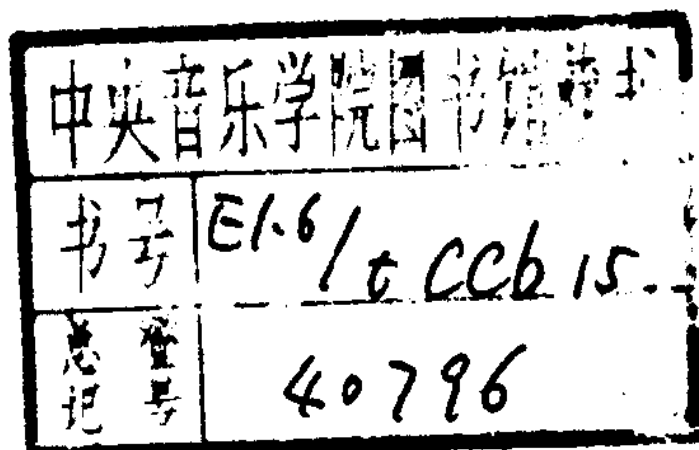 中央音乐学院图书馆藏书
书号 E1.6/t CCb 15.
总登记号 40796